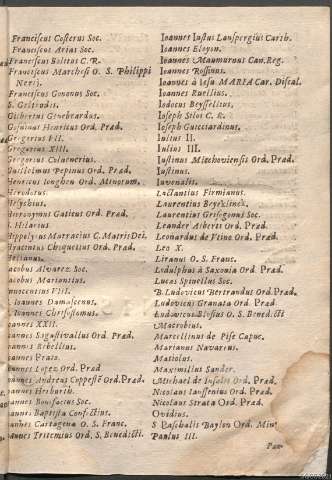 Franciscus Costerus Soc.
Franciscus Arias Soc.
Franciscus Bolitos C. R.
Franciscus Marchesi O. S. Philippi
Nerij.
Franciscus Gononus Soc.
S. Geltrudis.
Gilbertus Genebrardus.
Henricus Ord. Prad.
Gregorius VII.
Gregorius XIII.
Gregorius
Guilielmus Pepinus Ord. Prad.
Henricus Ord. Minorum.
Herodotus.
Hieronymus Ord. Prad.
S. Hilarius.
Hippolytus Marraccius C. Matris Dei.
Hyacintus Ord. Prad.
Iacobus Alvarez Soc.
Iacobus
Innocentius VIII.
Ioannes Damascenus.
Ioannes Chrisostomus.
Ioannes XXII.
Ioannes Ord. Prad.
Ioannes
Ioannes
Ioannes Lopez Ord. Prad
Ioannes Andreas Ord. Prad.
Ioannes Herburth.
Ioannes Bonifacius Soc.
Ioannes Baptista
Ioannes Cartagena O. S. Franc.
Ioannes Tritemius Ord. S. Benedicti.
Ioannes Iustus Lanspergius Carth.
Ioannes
Ioannes Mauburnus Can. Reg.
Ioannes Rossinus.
Ioannes à Iesu MARIA Car. Discal.
Ioannes Ruellius.
Iodocus Beysselius.
Ioseph Silos C. R.
Ioseph Guicciardinus.
Iulius II.
Iulius III.
Iustinus Miechoviensis Ord. Prad.
Iustinus.
Iuvenalis.
Lactantius Firmianus.
Laurentius Beyerlinck.
Laurentius Grisogonus Soc.
Leander Alberti Ord. Prad.
Leonardus de Vtino Ord. Prad.
Leo X.
Liranus O. S. Franc.
Ludulphus à Saxonia Ord. Prad.
Lucas Pinellus Soc.
B. Ludovicus Bertrandus Ord. Prad.
Ludovicus Granata Ord. Prad.
Ludovicus Blosius O. S. Benedicti
Macrobius.
Marcellinus de Pise Capuc.
Marianus Navarus.
Matiolus.
Maximilius Sander.
Michael de Insulis Ord. Prad.
Nicolaus Ianssenius Ord. Prad.
Nicolaus Strata Ord. Prad.
Ovidius.
S Paschalis Baylon Ord. Min.
Paulus III.
Pau-